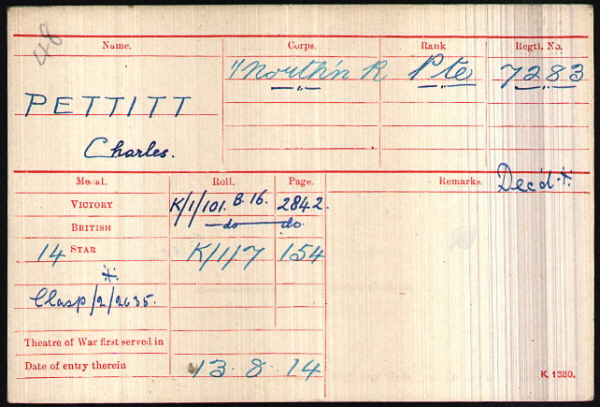 48
Name. Corps. Rank Regtl. No.
"North'n R Pte 7283
PETTITT
Charles.
Medal. Roll. Page. Remarks. Dec'd *
VICTORY K/1/101. B. 16. 2842.
BRITISH do do
14 STAR K/1/7 154
*
Clasp/2/2635.
Theatre of War first served in
Date of entry therein 13. 8. 14
K 1380.